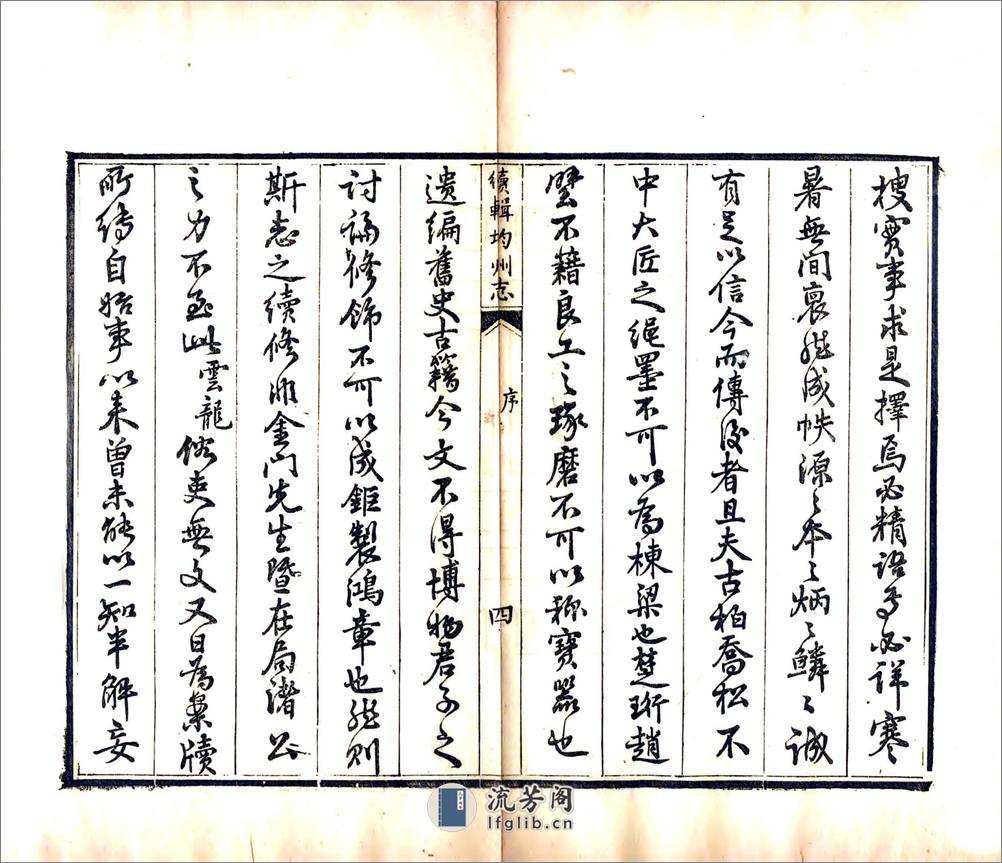 搜實事求是擇焉必精語焉必詳寒
暑無間裒然成帙源〻本〻炳〻鱗〻誠
有足以信今而傳後者且夫古柏喬松不
中大匠之繩墨不可以為棟梁也楚珩趙
璧不籍良工之琢磨不可以稱寶器也
續輯均州志
序
四
遺編舊史古籍今文不得博物君子之
討論修飾不可以成鉅製鴻章也然則
斯志之續修非金門先生暨在局諸公
之力不至此雲龍俗吏無文又日為案牘
所縛自始事以來曾未能以一知半解妄
流芳阁
lfglib.cn